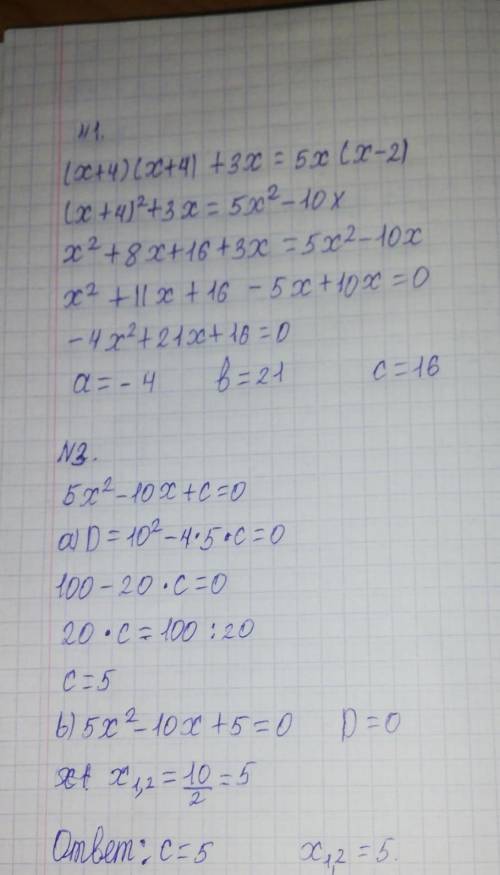 №1.
(x+4)(x+4) +3x = 5x (x-2)
(x+4)²+3x = 5x²-10x
x²+8x+16+3x = 5x²-10x
x²+11x+16 - 5x+10x = 0
-4x²+21x+16=0
a=-4 b=21 c=16
№3.
5x²-10x+c=0
a) D=10²-4·5·c=0
100-20·c=0
20·c=100:20
c=5
b) 5x²-10x+5=0 D=0
x₁,₂=10/2=5
Ответ: c=5 x₁,₂=5.